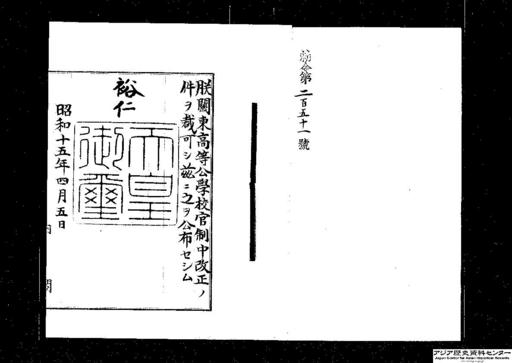 勅令第二百五十一號
朕關東高等公學校官制中改正ノ
件ヲ裁可シ茲ニ之ヲ公布セシム
裕仁
天皇
御璽
昭和十五年四月五日
内閣
アジア歴史資料センター
Japan Center for Asian Historical Records